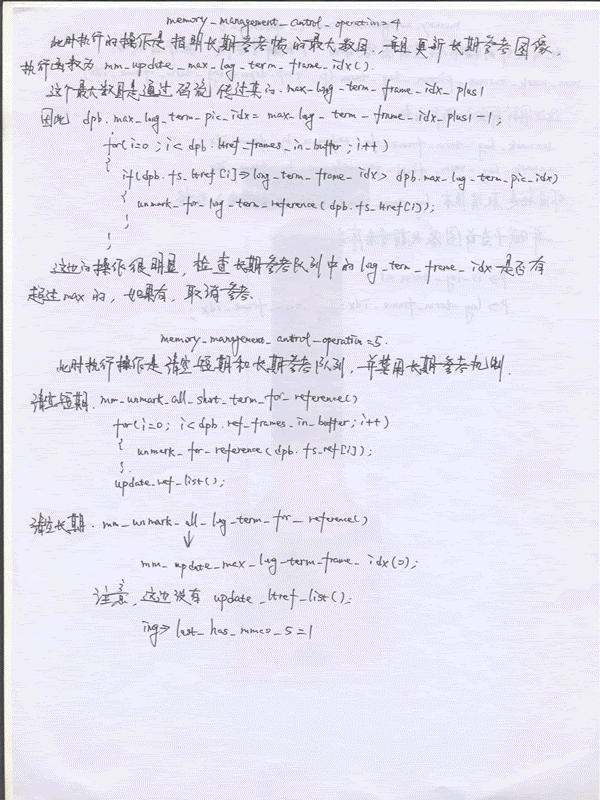 memory_management_control_operation=4
此时执行的操作是指明长期参考帧的最大数目，并且更新长期参考图像.
执行函数为 mm_update_max_long_term_frame_idx().
这个最大数目是通过码流传过来的. max_long_term_frame_idx_plus1
因此 dpb.max_long_term_pic_idx = max_long_term_frame_idx_plus1-1;
for(i=0; i<dpb.ltref_frames_in_buffer; i++)
{
if(dpb.fs_ltref[i]->long_term_frame_idx > dpb.max_long_term_pic_idx)
{
unmark_for_long_term_reference(dpb.fs_ltref[i]);
}
}
这边的操作很明显，检查长期参考队列中的 long_term_frame_idx 是否有
超过max的，如果有，取消参考.
memory_management_control_operation=5.
此时执行操作是清空短期和长期参考队列，并禁用长期参考机制.
清空短期. mm_unmark_all_short_term_for_reference()
for(i=0; i<dpb.ref_frames_in_buffer; i++)
{
unmark_for_reference(dpb.fs_ref[i]);
}
update_ref_list();
清空长期. mm_unmark_all_long_term_for_reference()
↓
mm_update_max_long_term_frame_idx(0);
注意，这边没有 update_ltref_list();
img->last_has_mmco_5=1